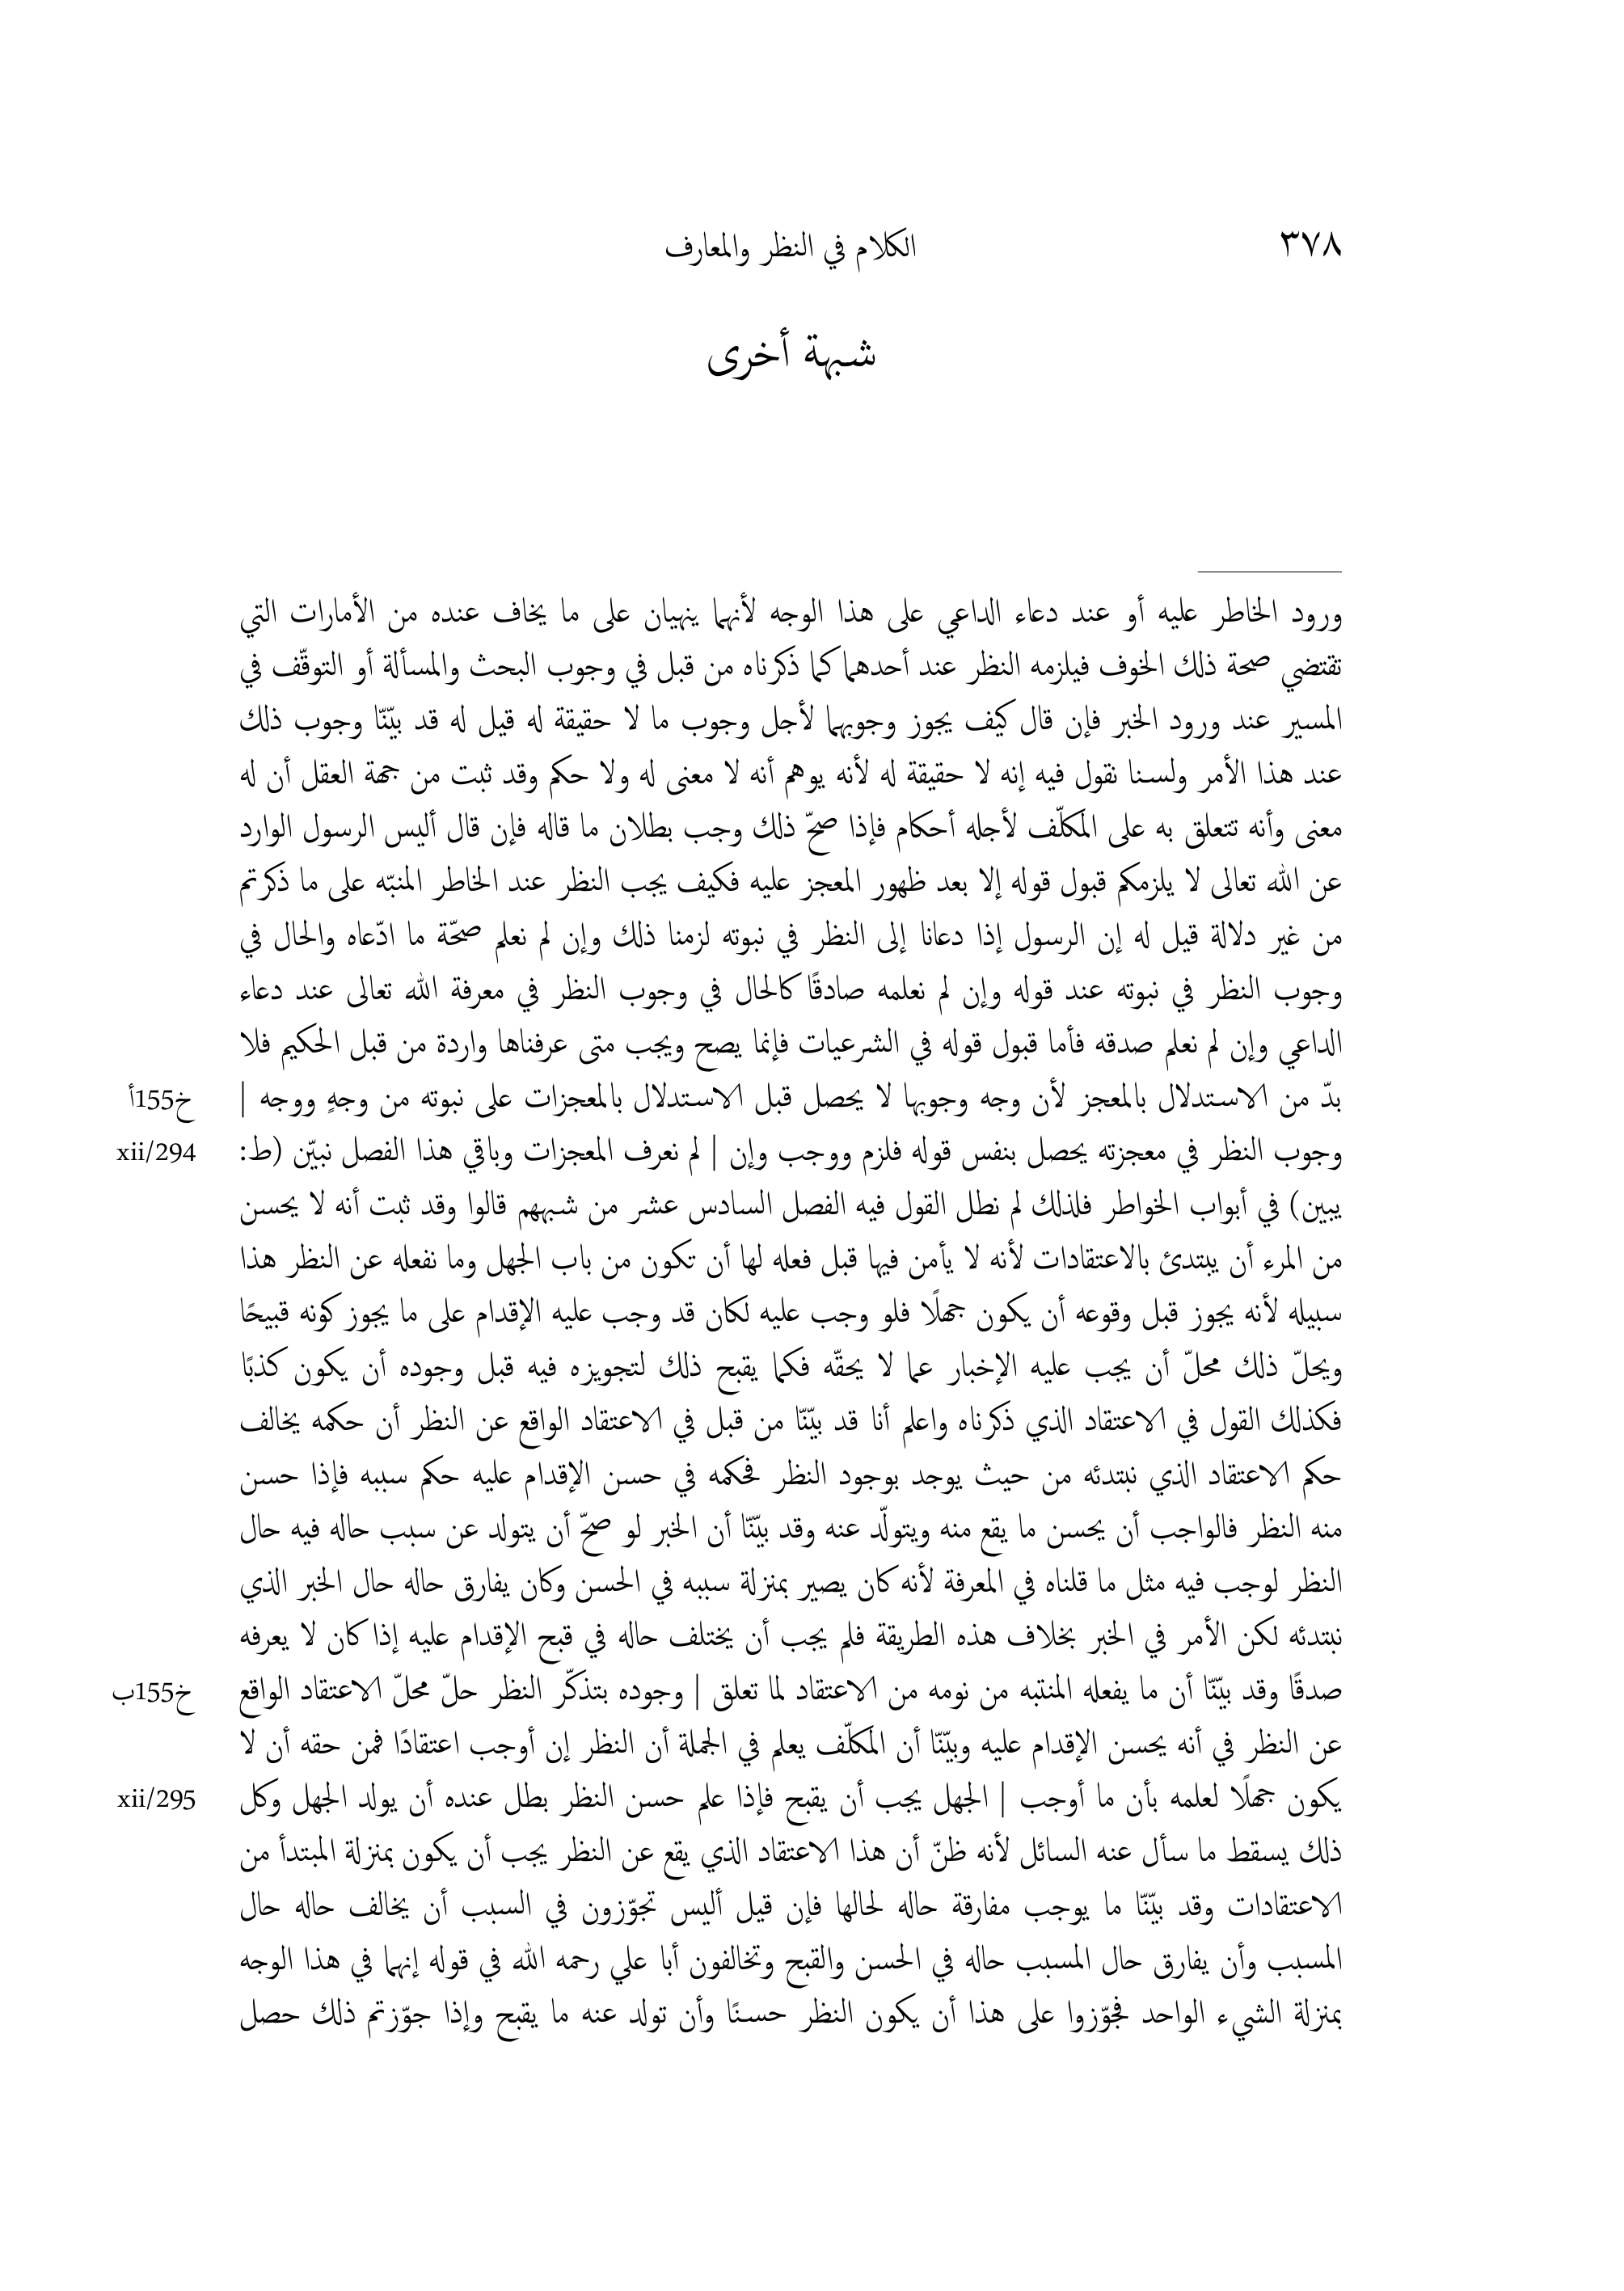 ٣٧٨
الكلام في النظر والمعارف
شبهة أخرى
ورود الخاطر عليه أو عند دعاء الداعي على هذا الوجه لأنهما ينهيان على ما يخاف عنده من الأمارات التي
تقتضي صحة ذلك الخوف فيلزمه النظر عند أحدهما كما ذكرناه من قبل في وجوب البحث والمسألة أو التوقّف في
المسير عند ورود الخبر فإن قال كيف يجوز وجوبهما لأجل وجوب ما لا حقيقة له قيل له قد بيّنّا وجوب ذلك
عند هذا الأمر ولسنا نقول فيه إنه لا حقيقة له لأنه يوهم أنه لا معنى له ولا حكم وقد ثبت من جهة العقل أن له
معنى وأنه تتعلق به على المكلّف لأجله أحكام فإذا صحّ ذلك وجب بطلان ما قاله فإن قال أليس الرسول الوارد
عن الله تعالى لا يلزمكم قبول قوله إلا بعد ظهور المعجز عليه فكيف يجب النظر عند الخاطر المنبّه على ما ذكرتم
من غير دلالة قيل له إن الرسول إذا دعانا إلى النظر في نبوته لزمنا ذلك وإن لم نعلم صحّة ما ادّعاه والحال في
وجوب النظر في نبوته عند قوله وإن لم نعلمه صادقًا كالحال في وجوب النظر في معرفة الله تعالى عند دعاء
الداعي وإن لم نعلم صدقه فأما قبول قوله في الشرعيات فإنما يصح ويجب متى عرفناها واردة من قبل الحكيم فلا
بدّ من الاستدلال بالمعجز لأن وجه وجوبها لا يحصل قبل الاستدلال بالمعجزات على نبوته من وجهٍ ووجه | خ155أ
وجوب النظر في معجزته يحصل بنفس قوله فلزم ووجب وإن | لم نعرف المعجزات وباقي هذا الفصل نبيّن (ط: xii/294
يبين) في أبواب الخواطر فلذلك لم نطل القول فيه الفصل السادس عشر من شبههم قالوا وقد ثبت أنه لا يحسن
من المرء أن يبتدئ بالاعتقادات لأنه لا يأمن فيها قبل فعله لها أن تكون من باب الجهل وما نفعله عن النظر هذا
سبيله لأنه يجوز قبل وقوعه أن يكون جهلًا فلو وجب عليه لكان قد وجب عليه الإقدام على ما يجوز كونه قبيحًا
ويحلّ ذلك محلّ أن يجب عليه الإخبار عما لا يحقّه فكما يقبح ذلك لتجويزه فيه قبل وجوده أن يكون كذبًا
فكذلك القول في الاعتقاد الذي ذكرناه واعلم أنا قد بيّنّا من قبل في الاعتقاد الواقع عن النظر أن حكمه يخالف
حكم الاعتقاد الذي نبتدئه من حيث يوجد بوجود النظر فحكمه في حسن الإقدام عليه حكم سببه فإذا حسن
منه النظر فالواجب أن يحسن ما يقع منه ويتولّد عنه وقد بيّنّا أن الخبر لو صحّ أن يتولد عن سبب حاله فيه حال
النظر لوجب فيه مثل ما قلناه في المعرفة لأنه كان يصير بمنزلة سببه في الحسن وكان يفارق حاله حال الخبر الذي
نبتدئه لكن الأمر في الخبر بخلاف هذه الطريقة فلم يجب أن يختلف حاله في قبح الإقدام عليه إذا كان لا يعرفه
صدقًا وقد بيّنّا أن ما يفعله المنتبه من نومه من الاعتقاد لما تعلق | وجوده بتذكّر النظر حلّ محلّ الاعتقاد الواقع خ155ب
عن النظر في أنه يحسن الإقدام عليه وبيّنّا أن المكلّف يعلم في الجملة أن النظر إن أوجب اعتقادًا فمن حقه أن لا
يكون جهلًا لعلمه بأن ما أوجب | الجهل يجب أن يقبح فإذا علم حسن النظر بطل عنده أن يولد الجهل وكل xii/295
ذلك يسقط ما سأل عنه السائل لأنه ظنّ أن هذا الاعتقاد الذي يقع عن النظر يجب أن يكون بمنزلة المبتدأ من
الاعتقادات وقد بيّنّا ما يوجب مفارقة حاله لحالها فإن قيل أليس تجوّزون في السبب أن يخالف حاله حال
المسبب وأن يفارق حال المسبب حاله في الحسن والقبح وتخالفون أبا علي رحمه الله في قوله إنهما في هذا الوجه
بمنزلة الشيء الواحد فجوّزوا على هذا أن يكون النظر حسنًا وأن تولد عنه ما يقبح وإذا جوّزتم ذلك حصل